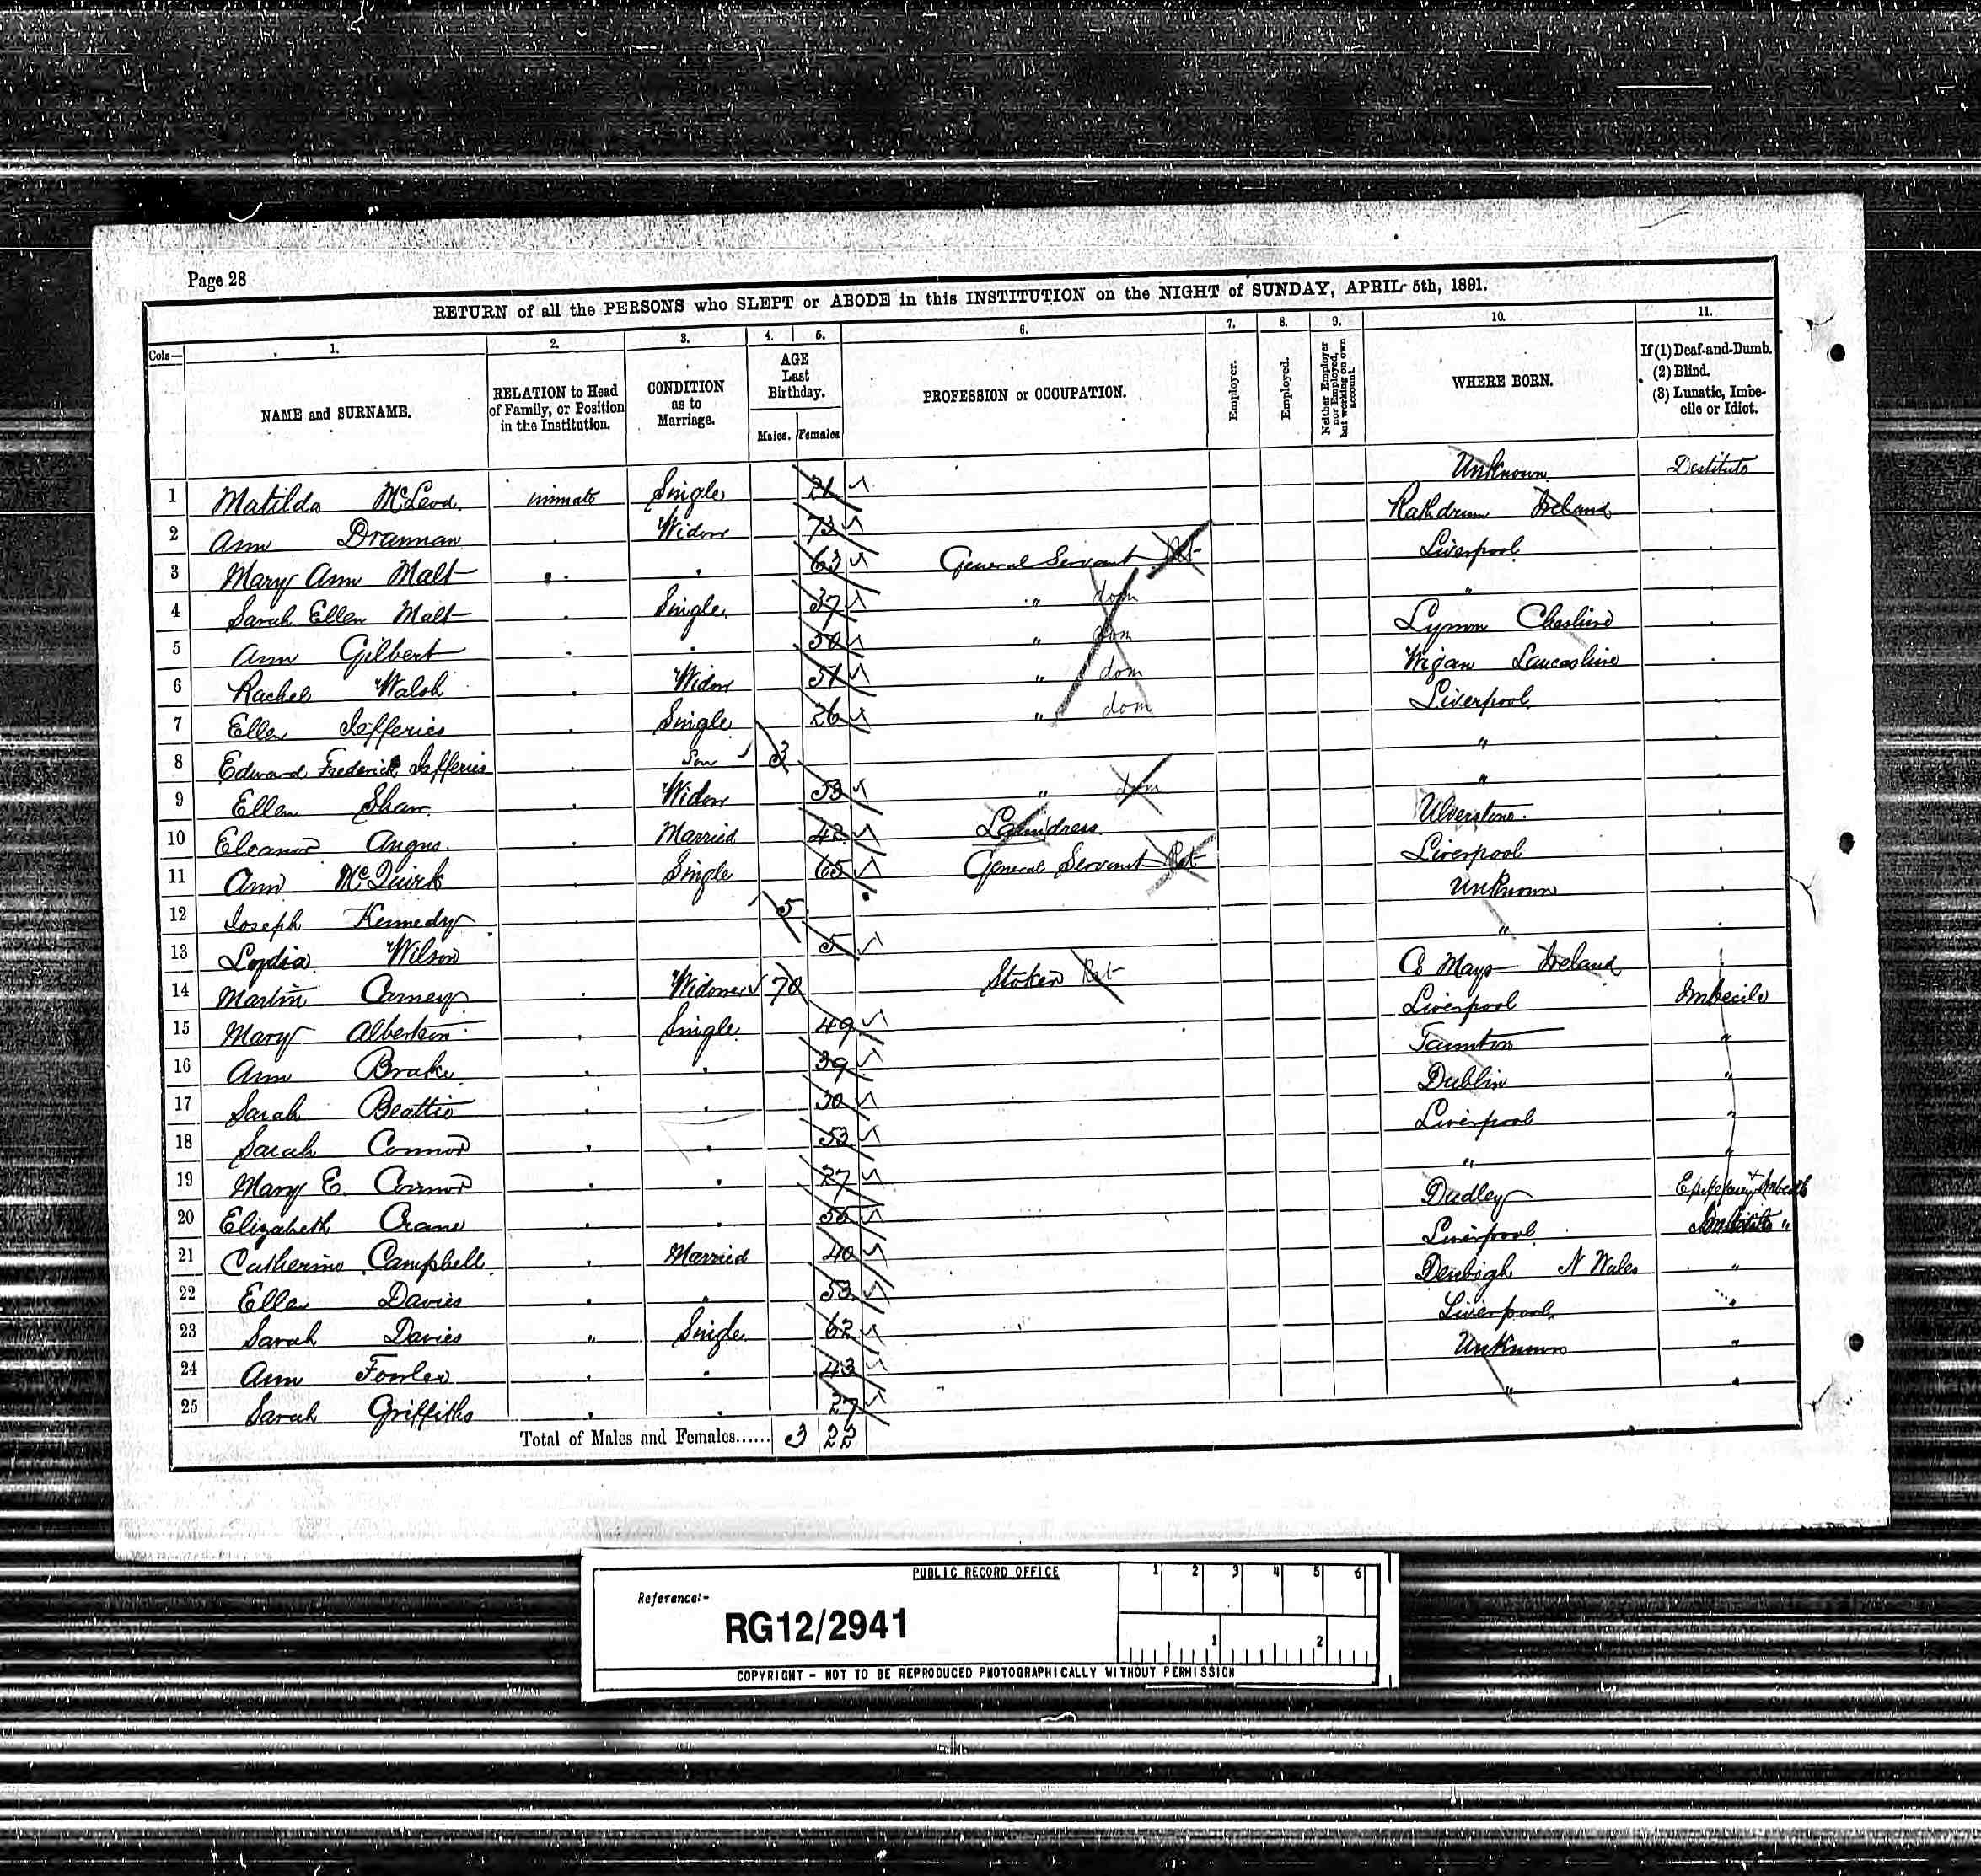 Page 28
RETURN of all the PERSONS who SLEPT or ABODE in this INSTITUTION on the NIGHT of SUNDAY, APRIL 5th, 1891.
Cols— 1. 2. 3. 4. 5. 6. 7. 8. 9. 10. 11.
NAME and SURNAME. RELATION to Head of Family, or Position in the Institution. CONDITION as to Marriage. AGE Last Birthday. Males. Females PROFESSION or OCCUPATION. Employer. Employed. Neither Employer nor Employed, but working on own account. WHERE BORN. If (1) Deaf-and-Dumb. (2) Blind. (3) Lunatic, Imbecile or Idiot.
1 Matilda McLeod inmate Single 21 Unknown Destitute
2 Ann Drannan Widow 73 Rathdrum Ireland
3 Mary Ann Malt 63 General Servant Ret Liverpool
4 Sarah Ellen Malt Single 37 " dom "
5 Ann Gilbert 50 " dom Lymm Cheshire
6 Rachel Walsh Widow 51 " dom Wigan Lancashire
7 Ellen Jefferies Single 26 " dom Liverpool
8 Edward Frederick Jefferies Son 3 "
9 Ellen Shaw Widow 53 " dom "
10 Eleanor Angus Married 42 Laundress Ulverstone
11 Ann McQuirk Single 65 General Servant Ret Liverpool
12 Joseph Kennedy 5 Unknown
13 Lydia Wilson 5 "
14 Martin Carney Widower 70 Stoker Ret Co Mayo Ireland
15 Mary Alberton Single 49 Liverpool Imbecile
16 Ann Brake 39 Taunton "
17 Sarah Beattie 30 Dublin "
18 Sarah Connor 53 Liverpool "
19 Mary E. Connor 27 " "
20 Elizabeth Crane Dudley Epilepsy + Imbecile
21 Catherine Campbell Married 40 Liverpool "
22 Ellen Davies 53 Denbigh N Wales "
23 Sarah Davies " Single 62 Liverpool "
24 Ann Fowler 43 Unknown "
25 Sarah Griffiths 27 " "
Total of Males and Females...... 3 22
PUBLIC RECORD OFFICE 1 2 3 4 5 6
Reference:-
RG12/2941
1 2
COPYRIGHT - NOT TO BE REPRODUCED PHOTOGRAPHICALLY WITHOUT PERMISSION